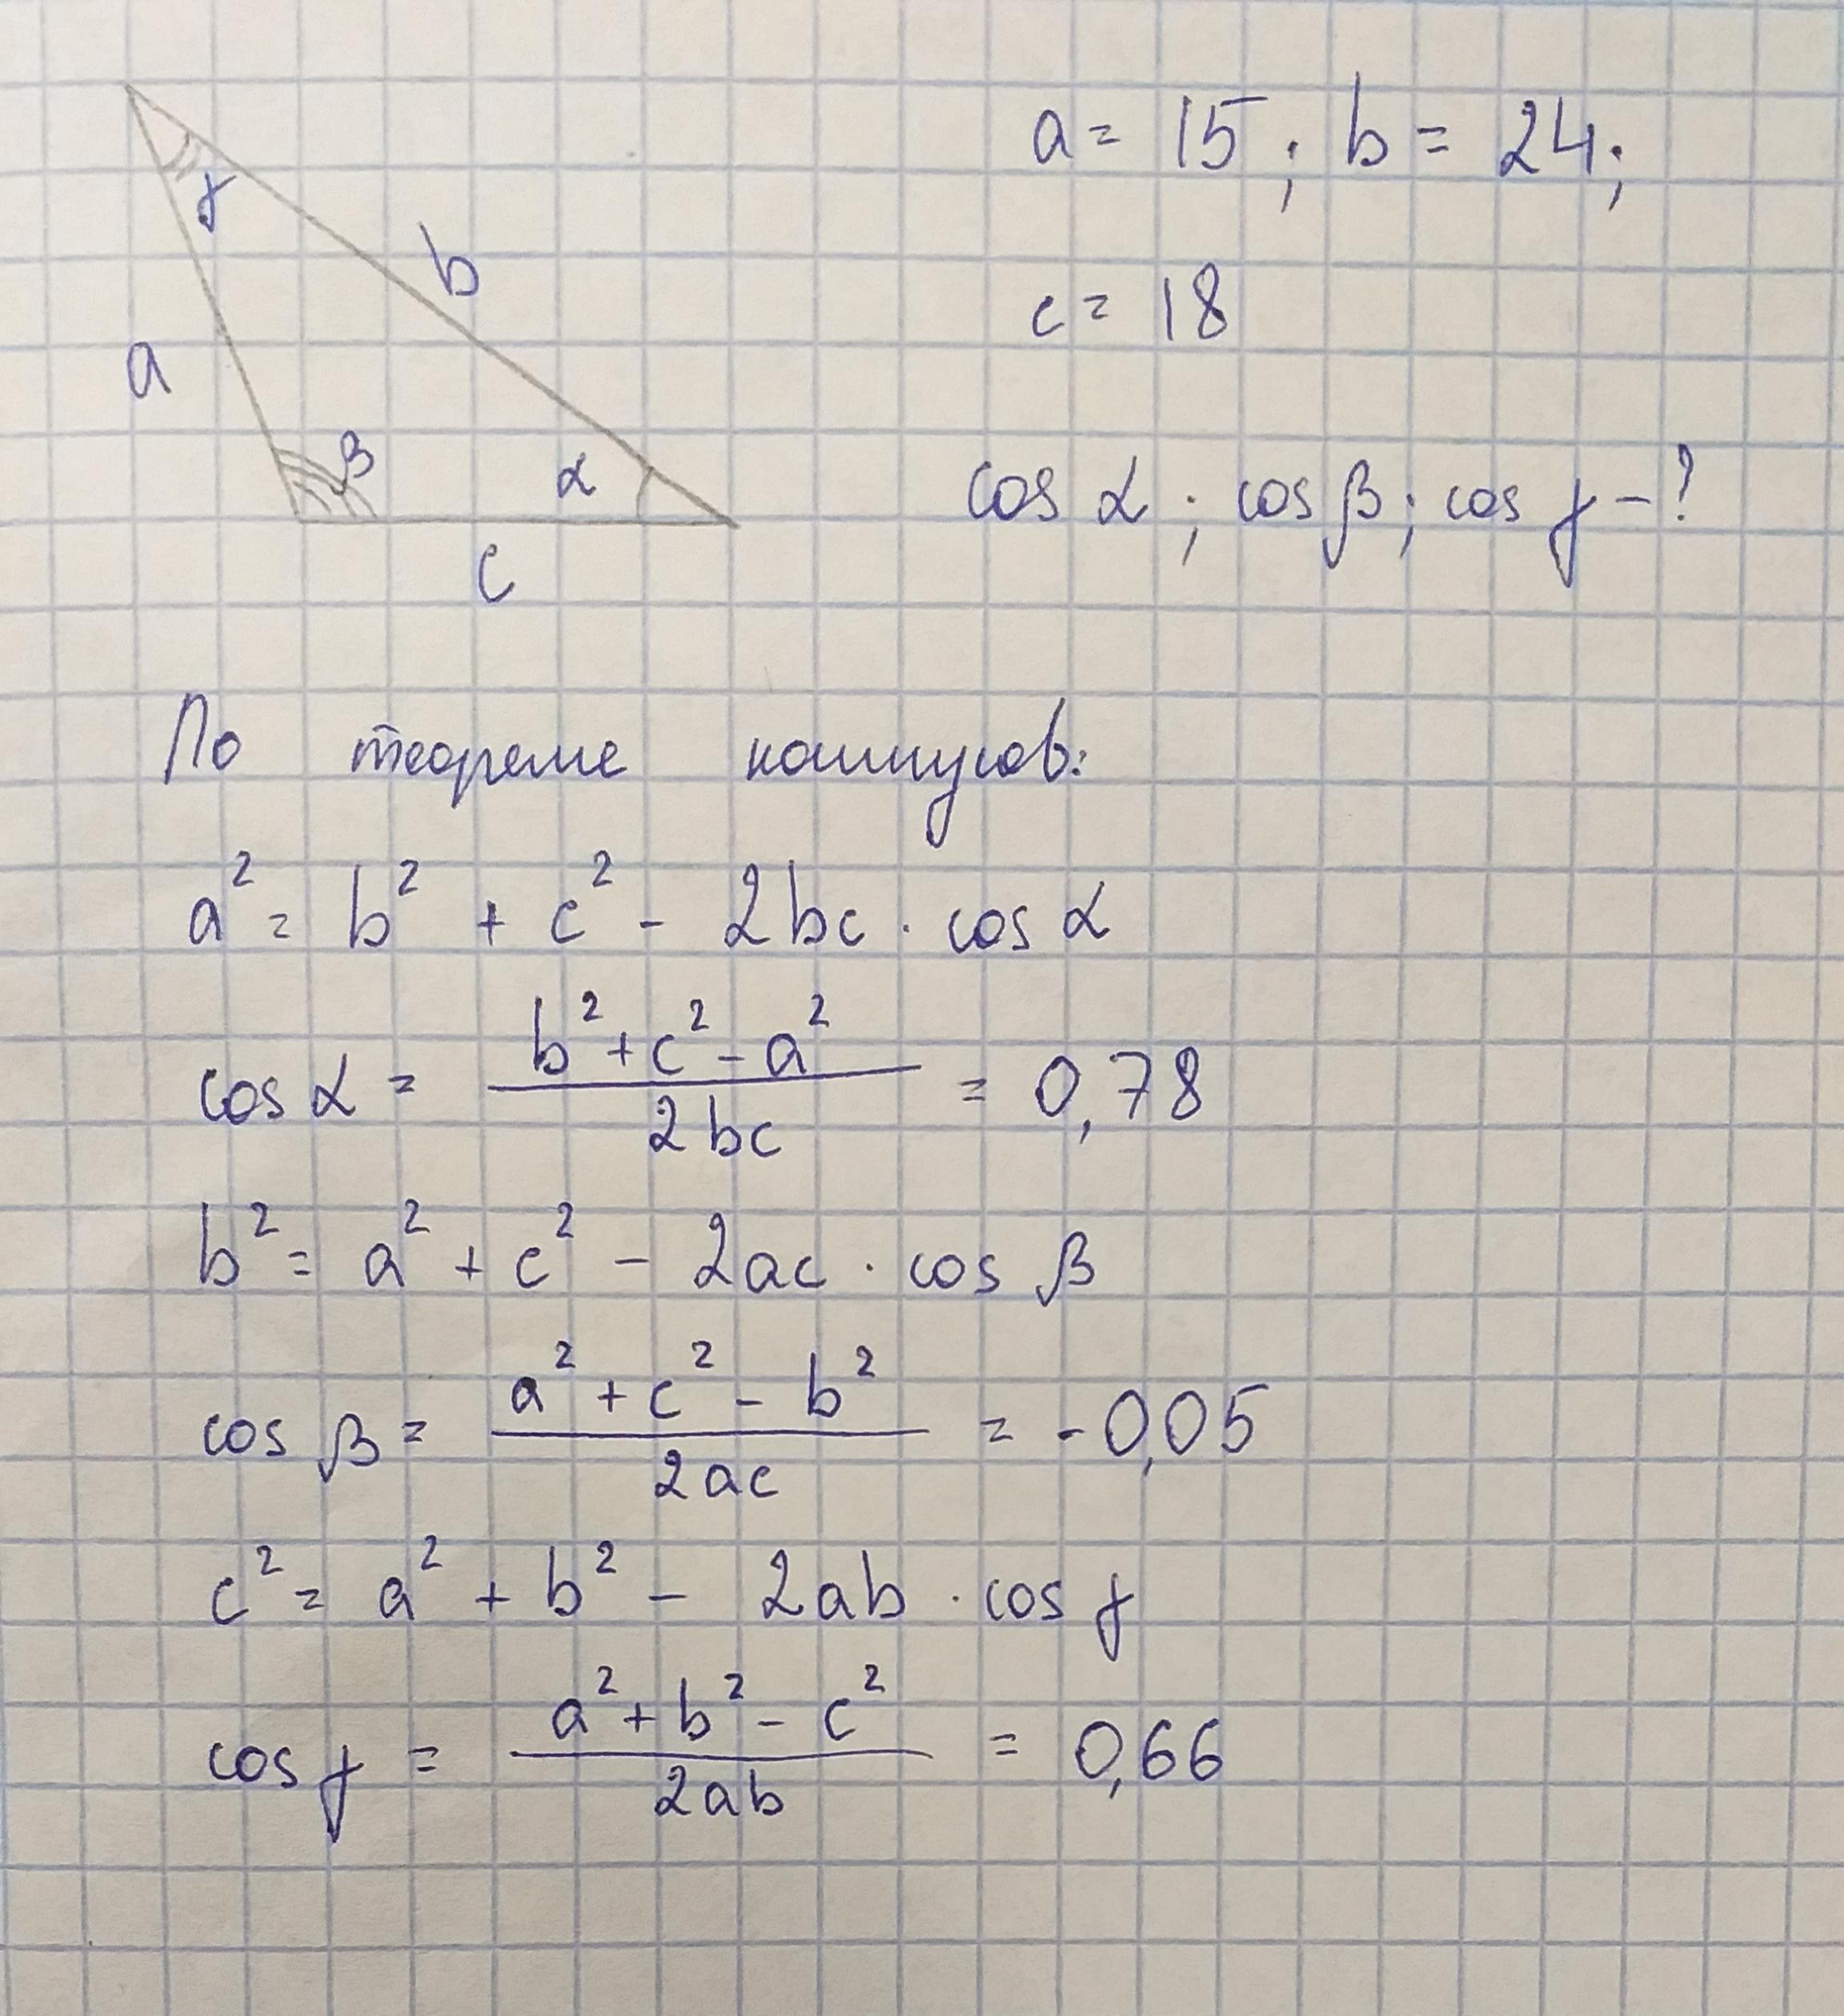 a = 15; b = 24;
c = 18
γ
b
a
β
α
c
cos α; cos β; cos γ - ?
По теореме косинусов:
a² = b² + c² - 2bc · cos α
cos α = (b² + c² - a²) / 2bc = 0,78
b² = a² + c² - 2ac · cos β
cos β = (a² + c² - b²) / 2ac = -0,05
c² = a² + b² - 2ab · cos γ
cos γ = (a² + b² - c²) / 2ab = 0,66